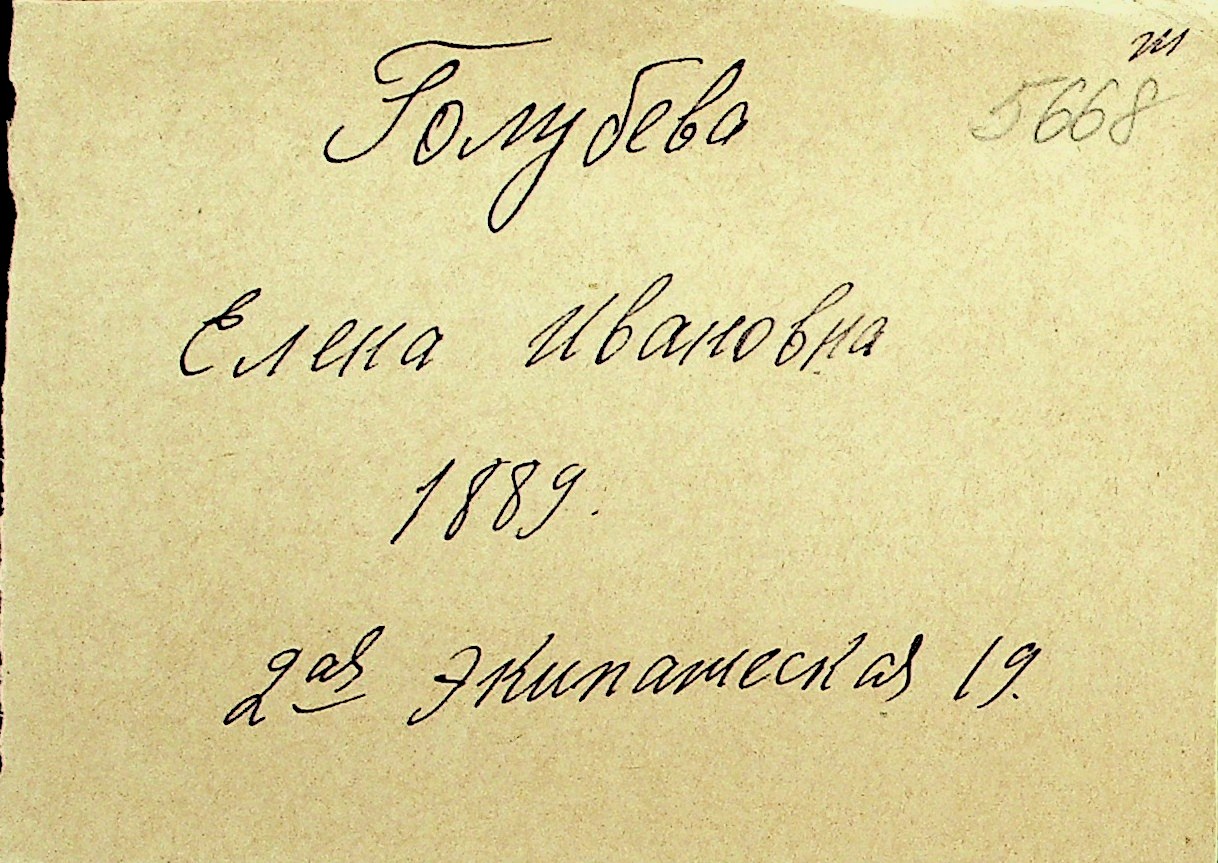 Голубева
5668
Елена Ивановна
1889.
2ая Экипажеская 19.